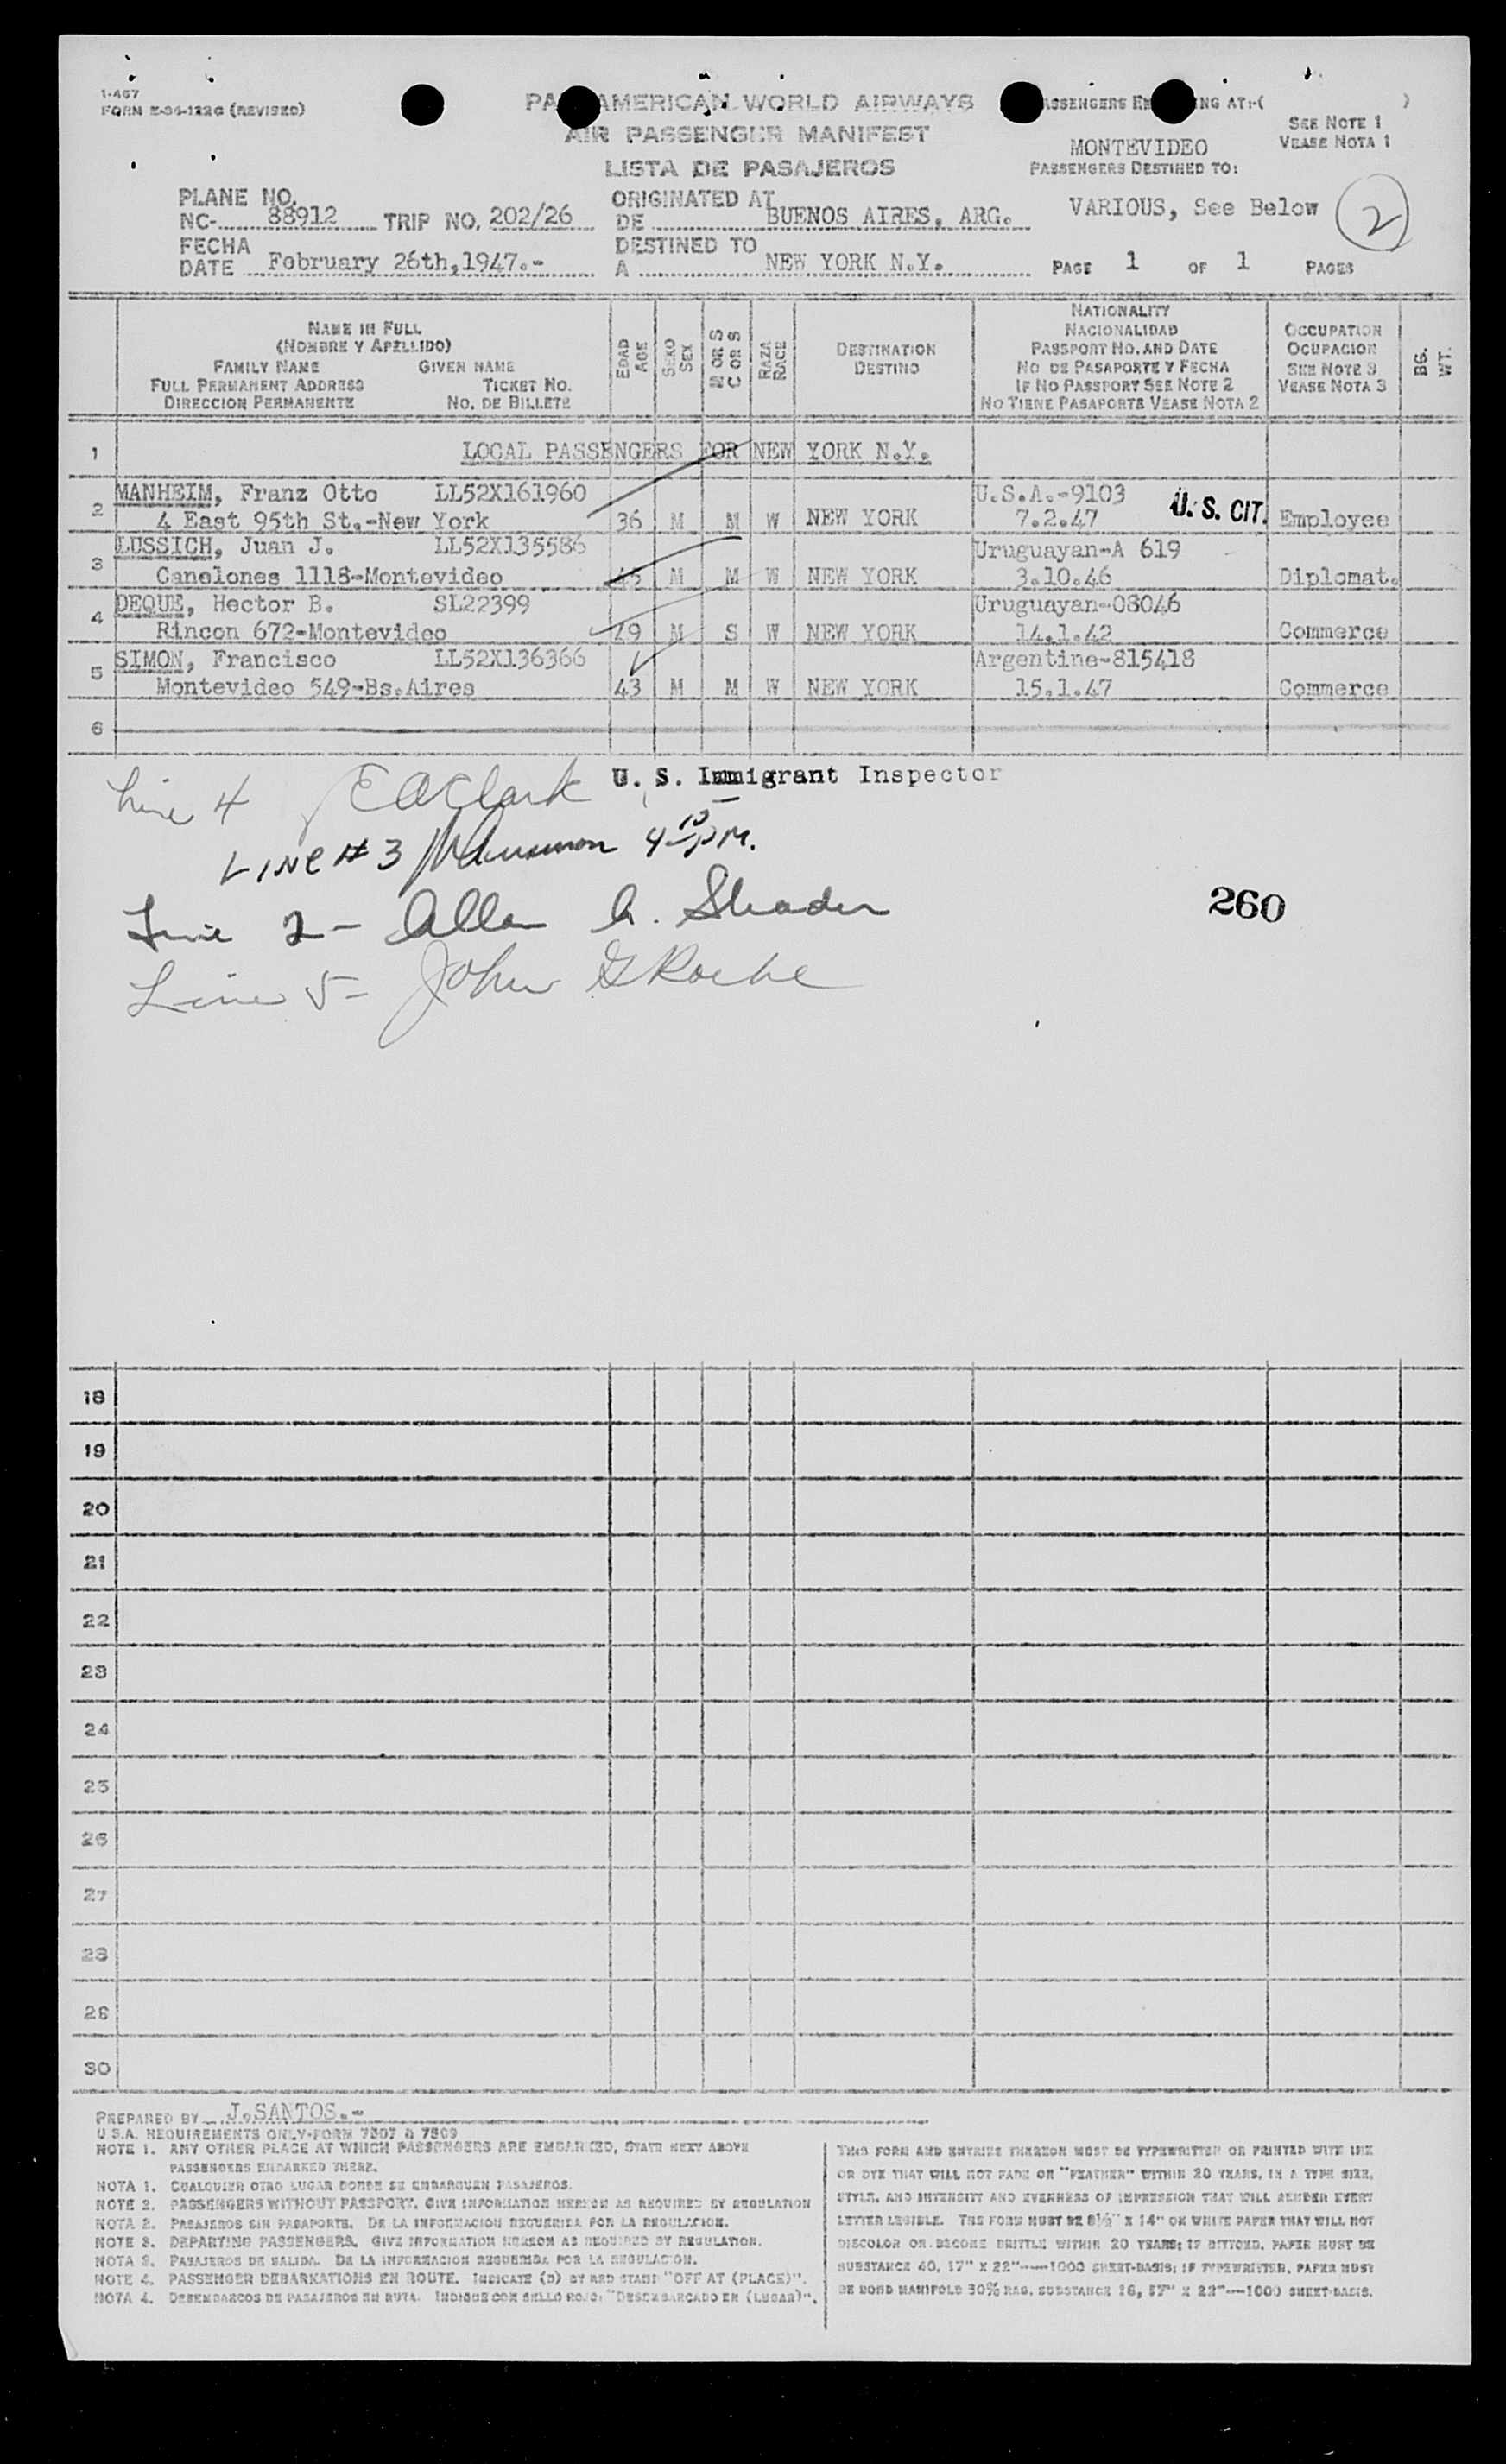 1-467
FORM E-34-122G (REVISED)
AMERICAN WORLD AIRWAYS
AIR PASSENGER MANIFEST
LISTA DE PASAJEROS
SEE NOTE 1
VEASE NOTA 1
MONTEVIDEO
PASSENGERS DESTINED TO:
VARIOUS, See Below
2
PLANE NO.
NC- 88912 TRIP NO. 202/26
ORIGINATED AT
DE BUENOS AIRES, ARG.
FECHA
DATE February 26th,1947.-
DESTINED TO
A NEW YORK N.Y.
PAGE 1 OF 1 PAGES
NAME IN FULL
(NOMBRE Y APELLIDO)
FAMILY NAME GIVEN NAME
FULL PERMANENT ADDRESS TICKET NO.
DIRECCION PERMANENTE NO. DE BILLETE
EDAD
AGE
SEXO
SEX
M OR S
C OR S
RAZA
RACE
DESTINATION
DESTINO
NATIONALITY
NACIONALIDAD
PASSPORT NO. AND DATE
NO DE PASAPORTE Y FECHA
IF NO PASSPORT SEE NOTE 2
NO TIENE PASAPORTE VEASE NOTA 2
OCCUPATION
OCUPACION
SEE NOTE 3
VEASE NOTA 3
BG.
WT.
1 LOCAL PASSENGERS FOR NEW YORK N.Y.
2 MANHEIM, Franz Otto LL52X161960 U.S.A.-9103
4 East 95th St.-New York 36 M M W NEW YORK 7.2.47 U.S. CIT. Employee
3 LUSSICH, Juan J. LL52X135586 Uruguayan-A 619
Canelones 1118-Montevideo 45 M M W NEW YORK 3.10.46 Diplomat.
4 DEQUE, Hector B. SL22399 Uruguayan-08046
Rincon 672-Montevideo 49 M S W NEW YORK 14.1.42 Commerce
5 SIMON, Francisco LL52X136366 Argentine-815418
Montevideo 549-Bs.Aires 43 M M W NEW YORK 15.1.47 Commerce
6
U. S. Immigrant Inspector
Line 4 E A Clark
LINE # 3 4 15 PM.
Line 2- Allan Shader
260
Line 5- John G Roche
18
19
20
21
22
23
24
25
26
27
28
29
30
PREPARED BY J.SANTOS.-
U.S.A. REQUIREMENTS ONLY-FORM 7507 & 7509
NOTE 1. ANY OTHER PLACE AT WHICH PASSENGERS ARE EMBARKED, STATE NEXT ABOVE
PASSENGERS EMBARKED THERE.
NOTA 1. CUALQUIER OTRO LUGAR DONDE SE EMBARQUEN PASAJEROS.
NOTE 2. PASSENGERS WITHOUT PASSPORT. GIVE INFORMATION HEREON AS REQUIRED BY REGULATION
NOTA 2. PASAJEROS SIN PASAPORTE. DE LA INFORMACION REQUERIDA POR LA REGULACION.
NOTE 3. DEPARTING PASSENGERS. GIVE INFORMATION HEREON AS REQUIRED BY REGULATION.
NOTA 3. PASAJEROS DE SALIDA. DE LA INFORMACION REQUERIDA POR LA REGULACION.
NOTE 4. PASSENGER DEBARKATIONS EN ROUTE. INDICATE (D) BY RED STAMP "OFF AT (PLACE)".
NOTA 4. DESEMBARCOS DE PASAJEROS EN RUTA. INDIQUE CON SELLO ROJO: "DESEMBARCADO EN (LUGAR)".
THIS FORM AND ENTRIES THEREON MUST BE TYPEWRITTEN OR PRINTED WITH INK
OR DYE THAT WILL NOT FADE OR "FEATHER" WITHIN 20 YEARS, IN A TYPE SIZE,
STYLE, AND INTENSITY AND EVENNESS OF IMPRESSION THAT WILL RENDER EVERY
LETTER LEGIBLE. THE FORM MUST BE 8½" X 14" ON WHITE PAPER THAT WILL NOT
DISCOLOR OR BECOME BRITTLE WITHIN 20 YEARS; IF DITTOED, PAPER MUST BE
SUBSTANCE 40, 17" X 22"----1000 SHEET-BASIS; IF TYPEWRITTEN, PAPER MUST
BE BOND MANIFOLD 30% RAG, SUBSTANCE 16, 17" X 22"---1000 SHEET-BASIS.